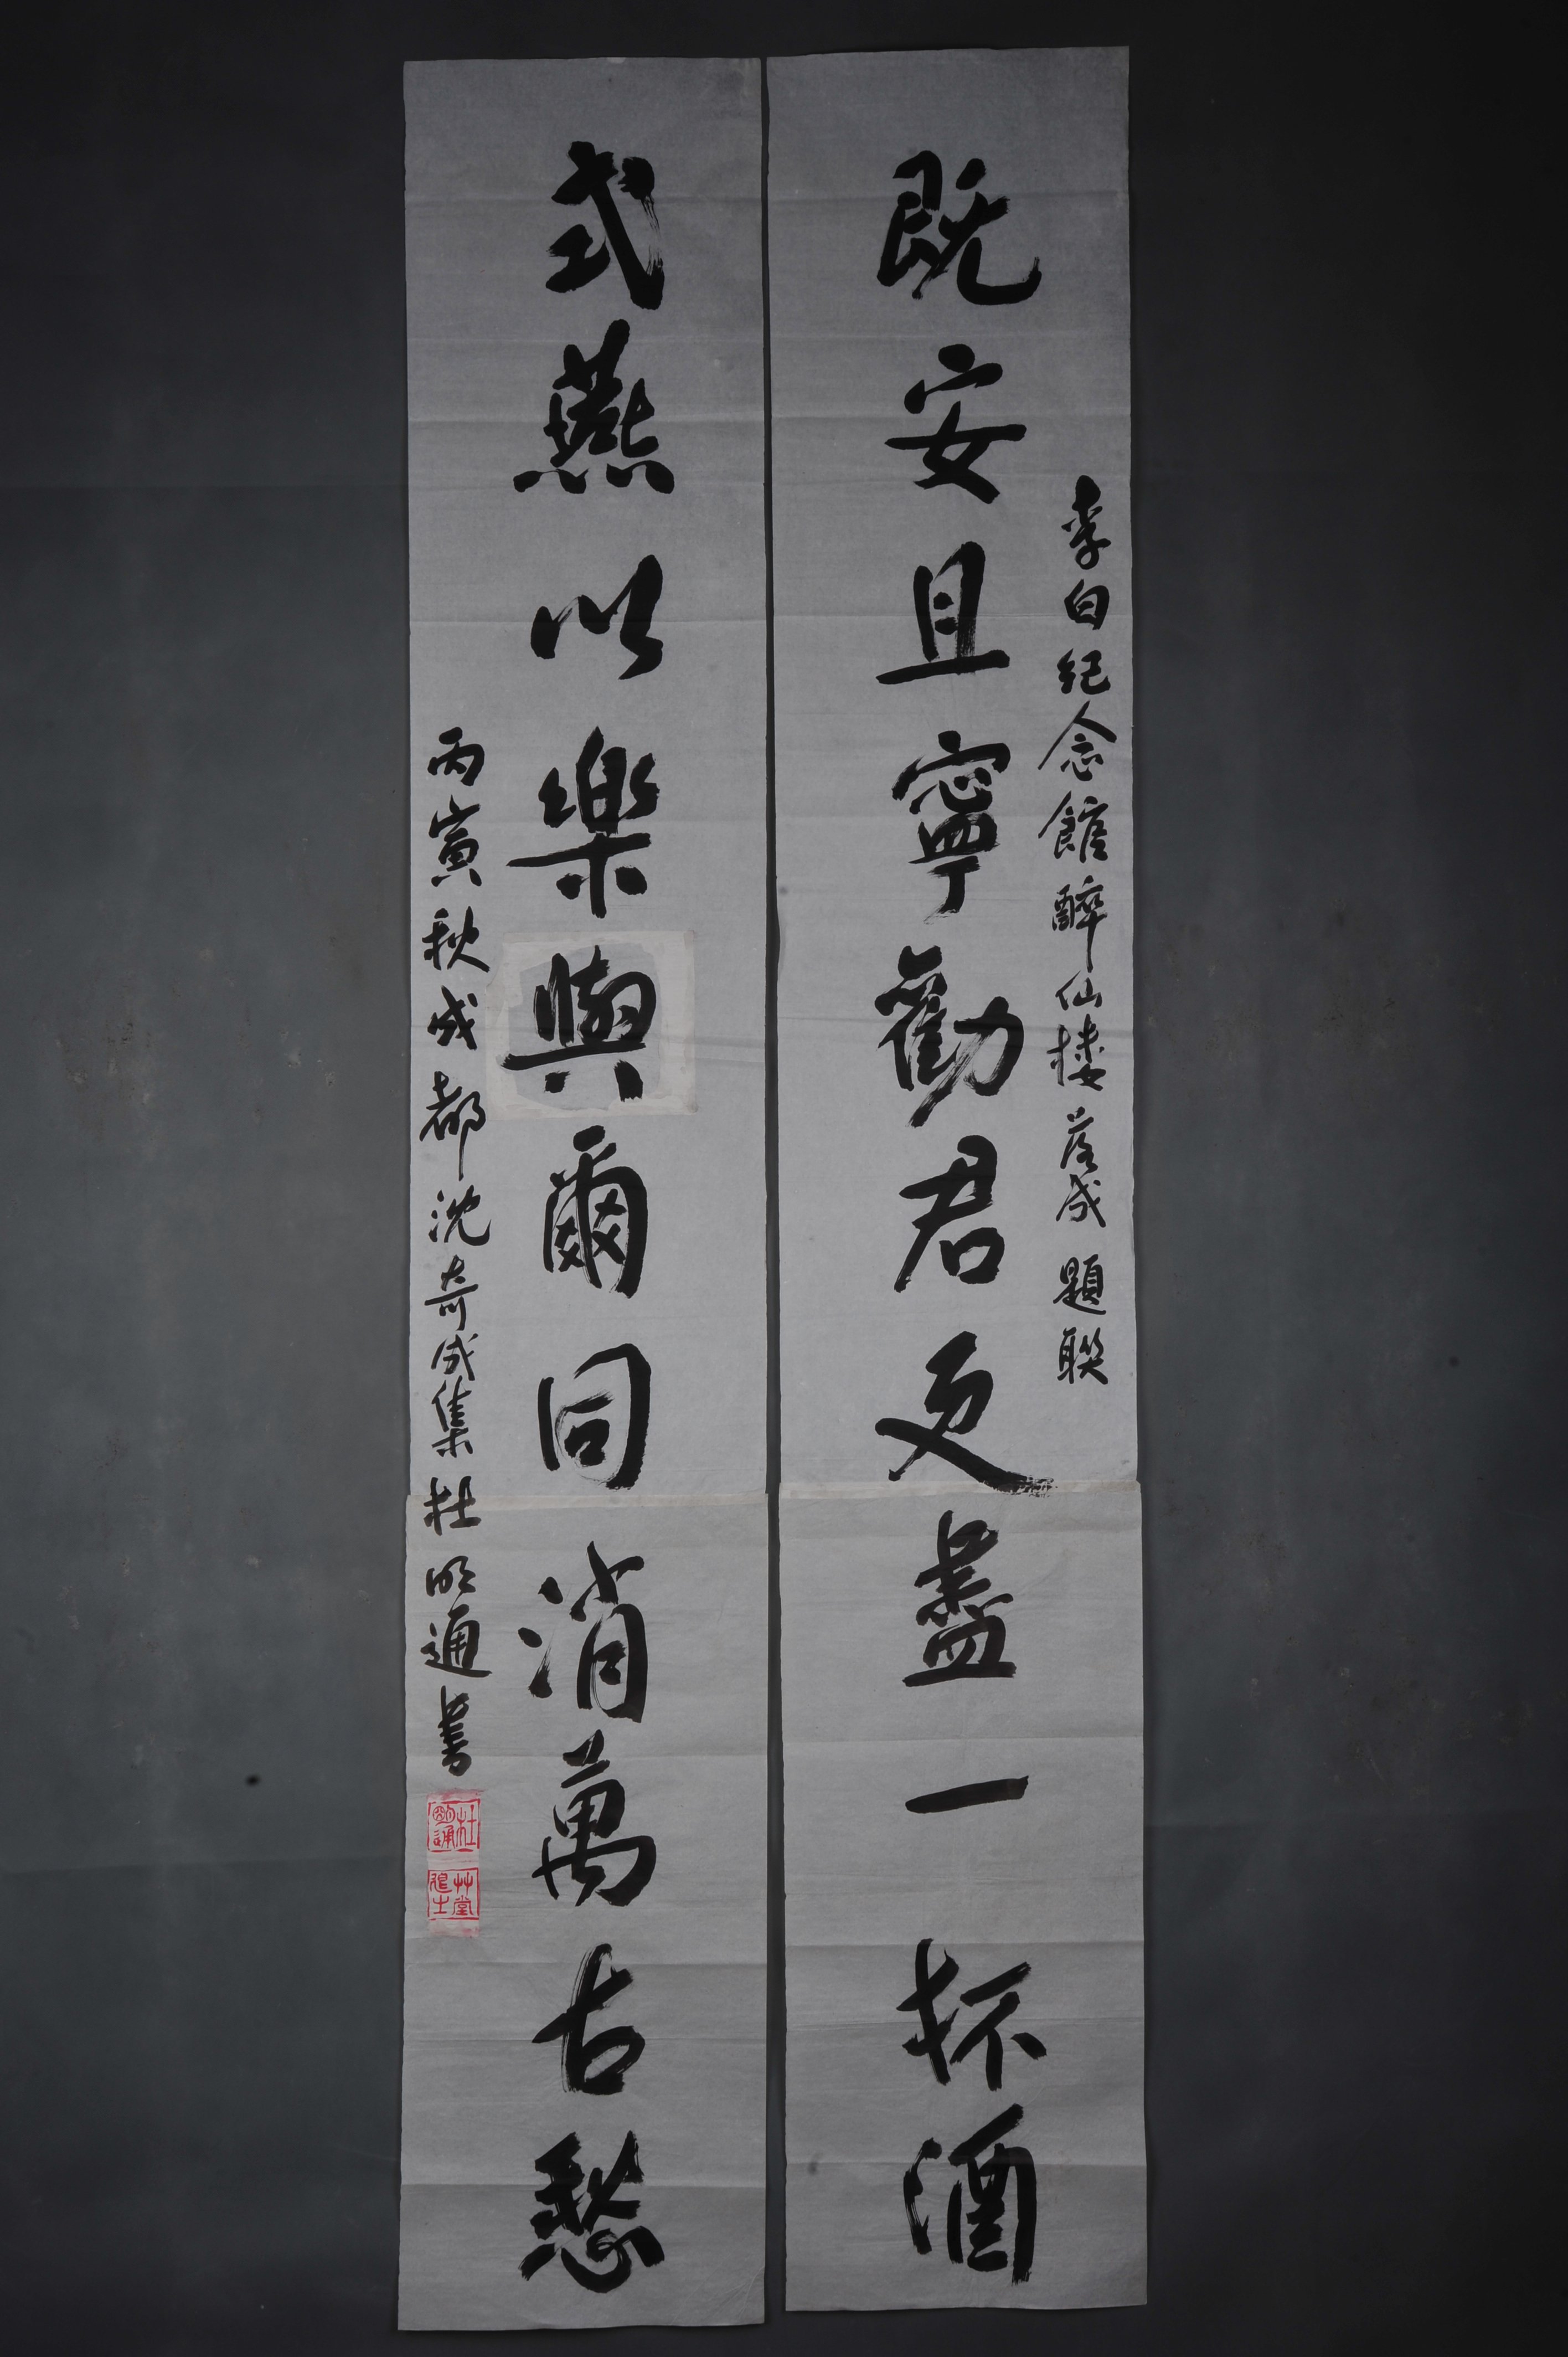 李白纪念館醉仙楼落成題聯
既安且寧勸君更盡一杯酒
式燕以樂與爾同消萬古愁
丙寅秋成都沈奇成集杜明通書
杜明通
艸堂退士